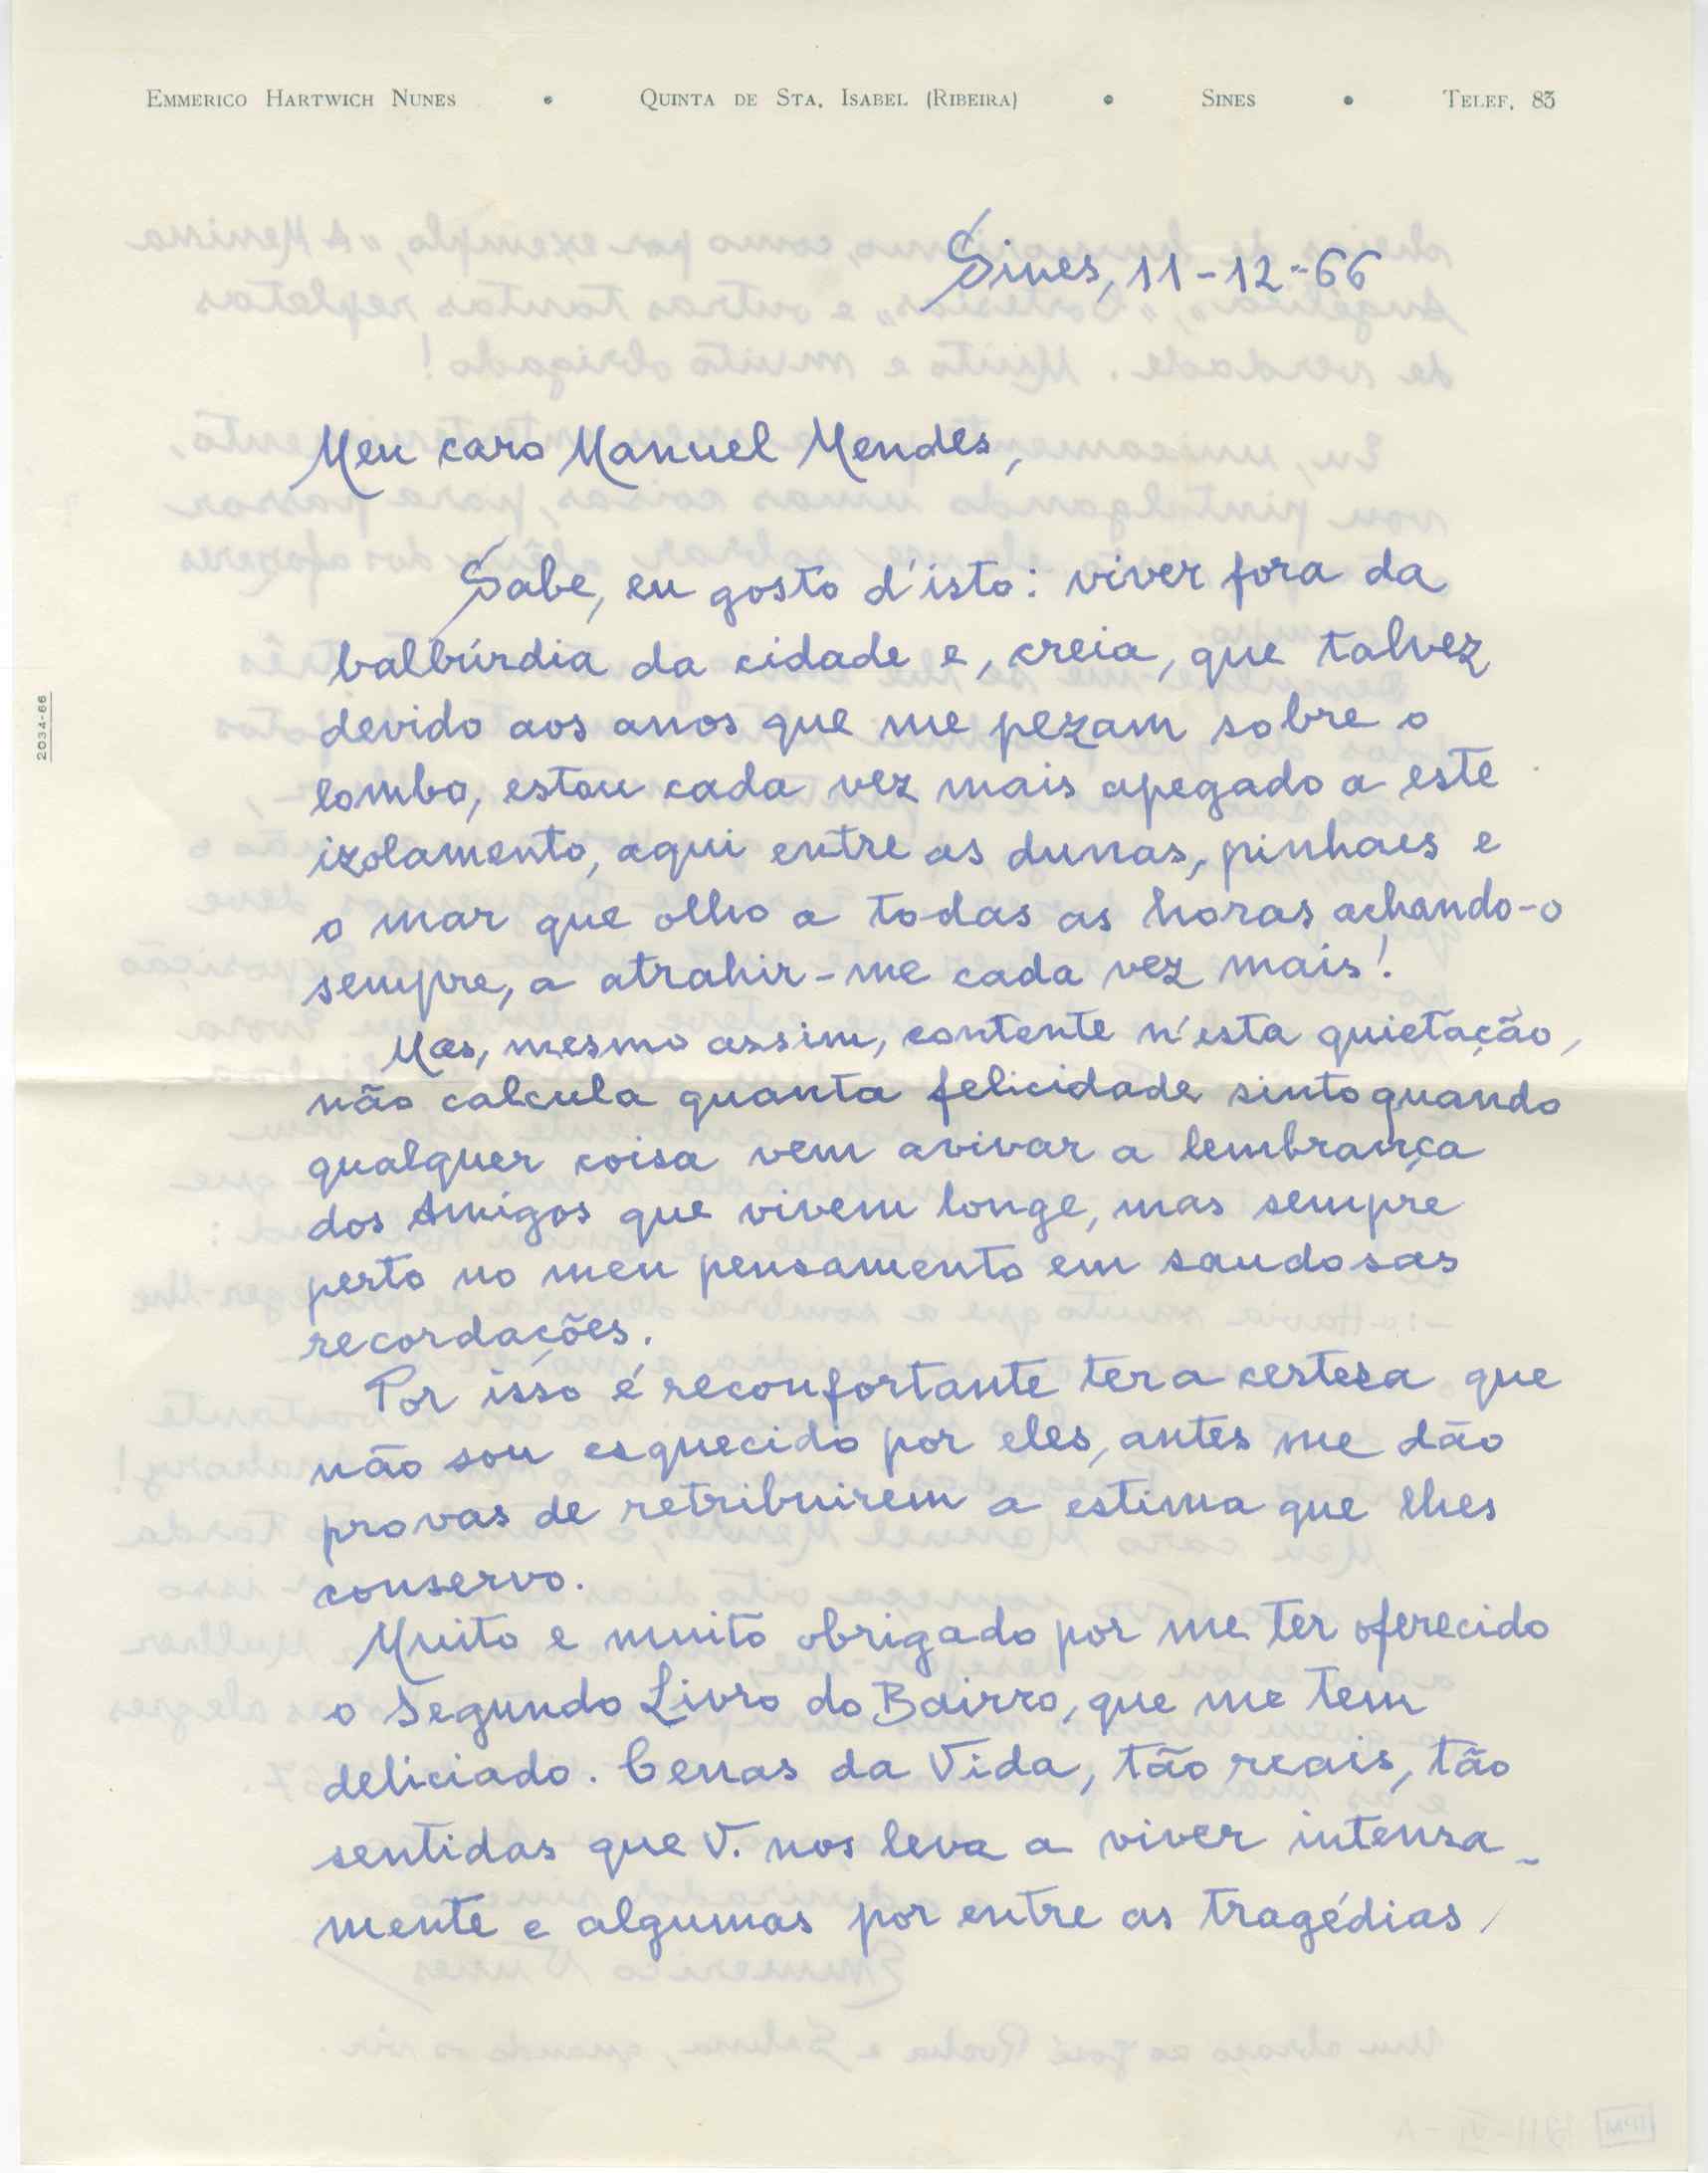 EMMERICO HARTWICH NUNES • QUINTA DE STA. ISABEL (RIBEIRA) • SINES • TELEF. 83
Sines, 11-12-66
Meu caro Manuel Mendes,
Sabe, eu gosto d'isto: viver fora da
balbúrdia da cidade e, creia, que talvez
devido aos anos que me pezam sobre o
lombo, estou cada vez mais apegado a este
izolamento, aqui entre as dunas, pinhaes e
o mar que olho a todas as horas achando-o
sempre, a atrahir-me cada vez mais!
Mas, mesmo assim, contente n'esta quietação,
não calcula quanta felicidade sinto quando
qualquer coisa vem avivar a lembrança
dos Amigos que vivem longe, mas sempre
perto no meu pensamento em saudosas
recordações.
Por isso é reconfortante ter a certesa que
não sou esquecido por eles, antes me dão
provas de retribuirem a estima que lhes
conservo.
Muito e muito obrigado por me ter oferecido
o Segundo Livro do Bairro, que me tem
deliciado. Cenas da Vida, tão reais, tão
sentidas que V. nos leva a viver intensa-
mente e algumas por entre as tragédias,
2034-66